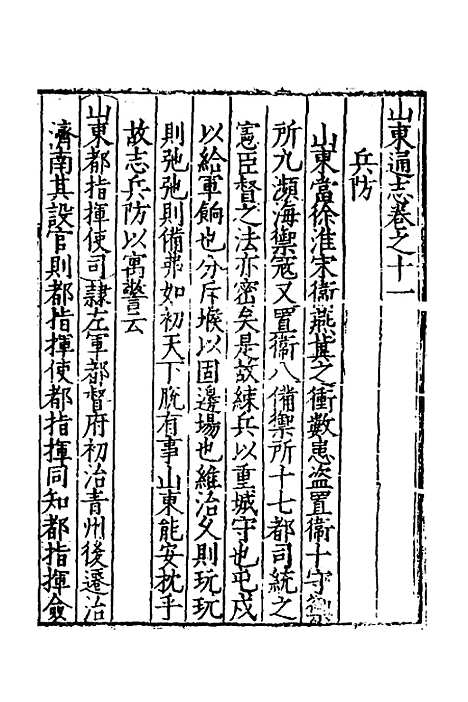 山東通志卷之十一
兵防
山東當徐淮宋衞燕冀之衝數患盜置衞十守禦
所九瀕海禦寇又置衞八備禦所十七都司統之
憲臣督之法亦密矣是故練兵以重城守也屯戍
以給軍餉也分斥堠以固邊埸也維治久則玩玩
則弛弛則備弗如初天下脫有事山東能安枕乎
故志兵防以寓警云
山東都指揮使司隷左軍都督府初治青州後遷治
濟南其設官則都指揮使都指揮同知都指揮僉